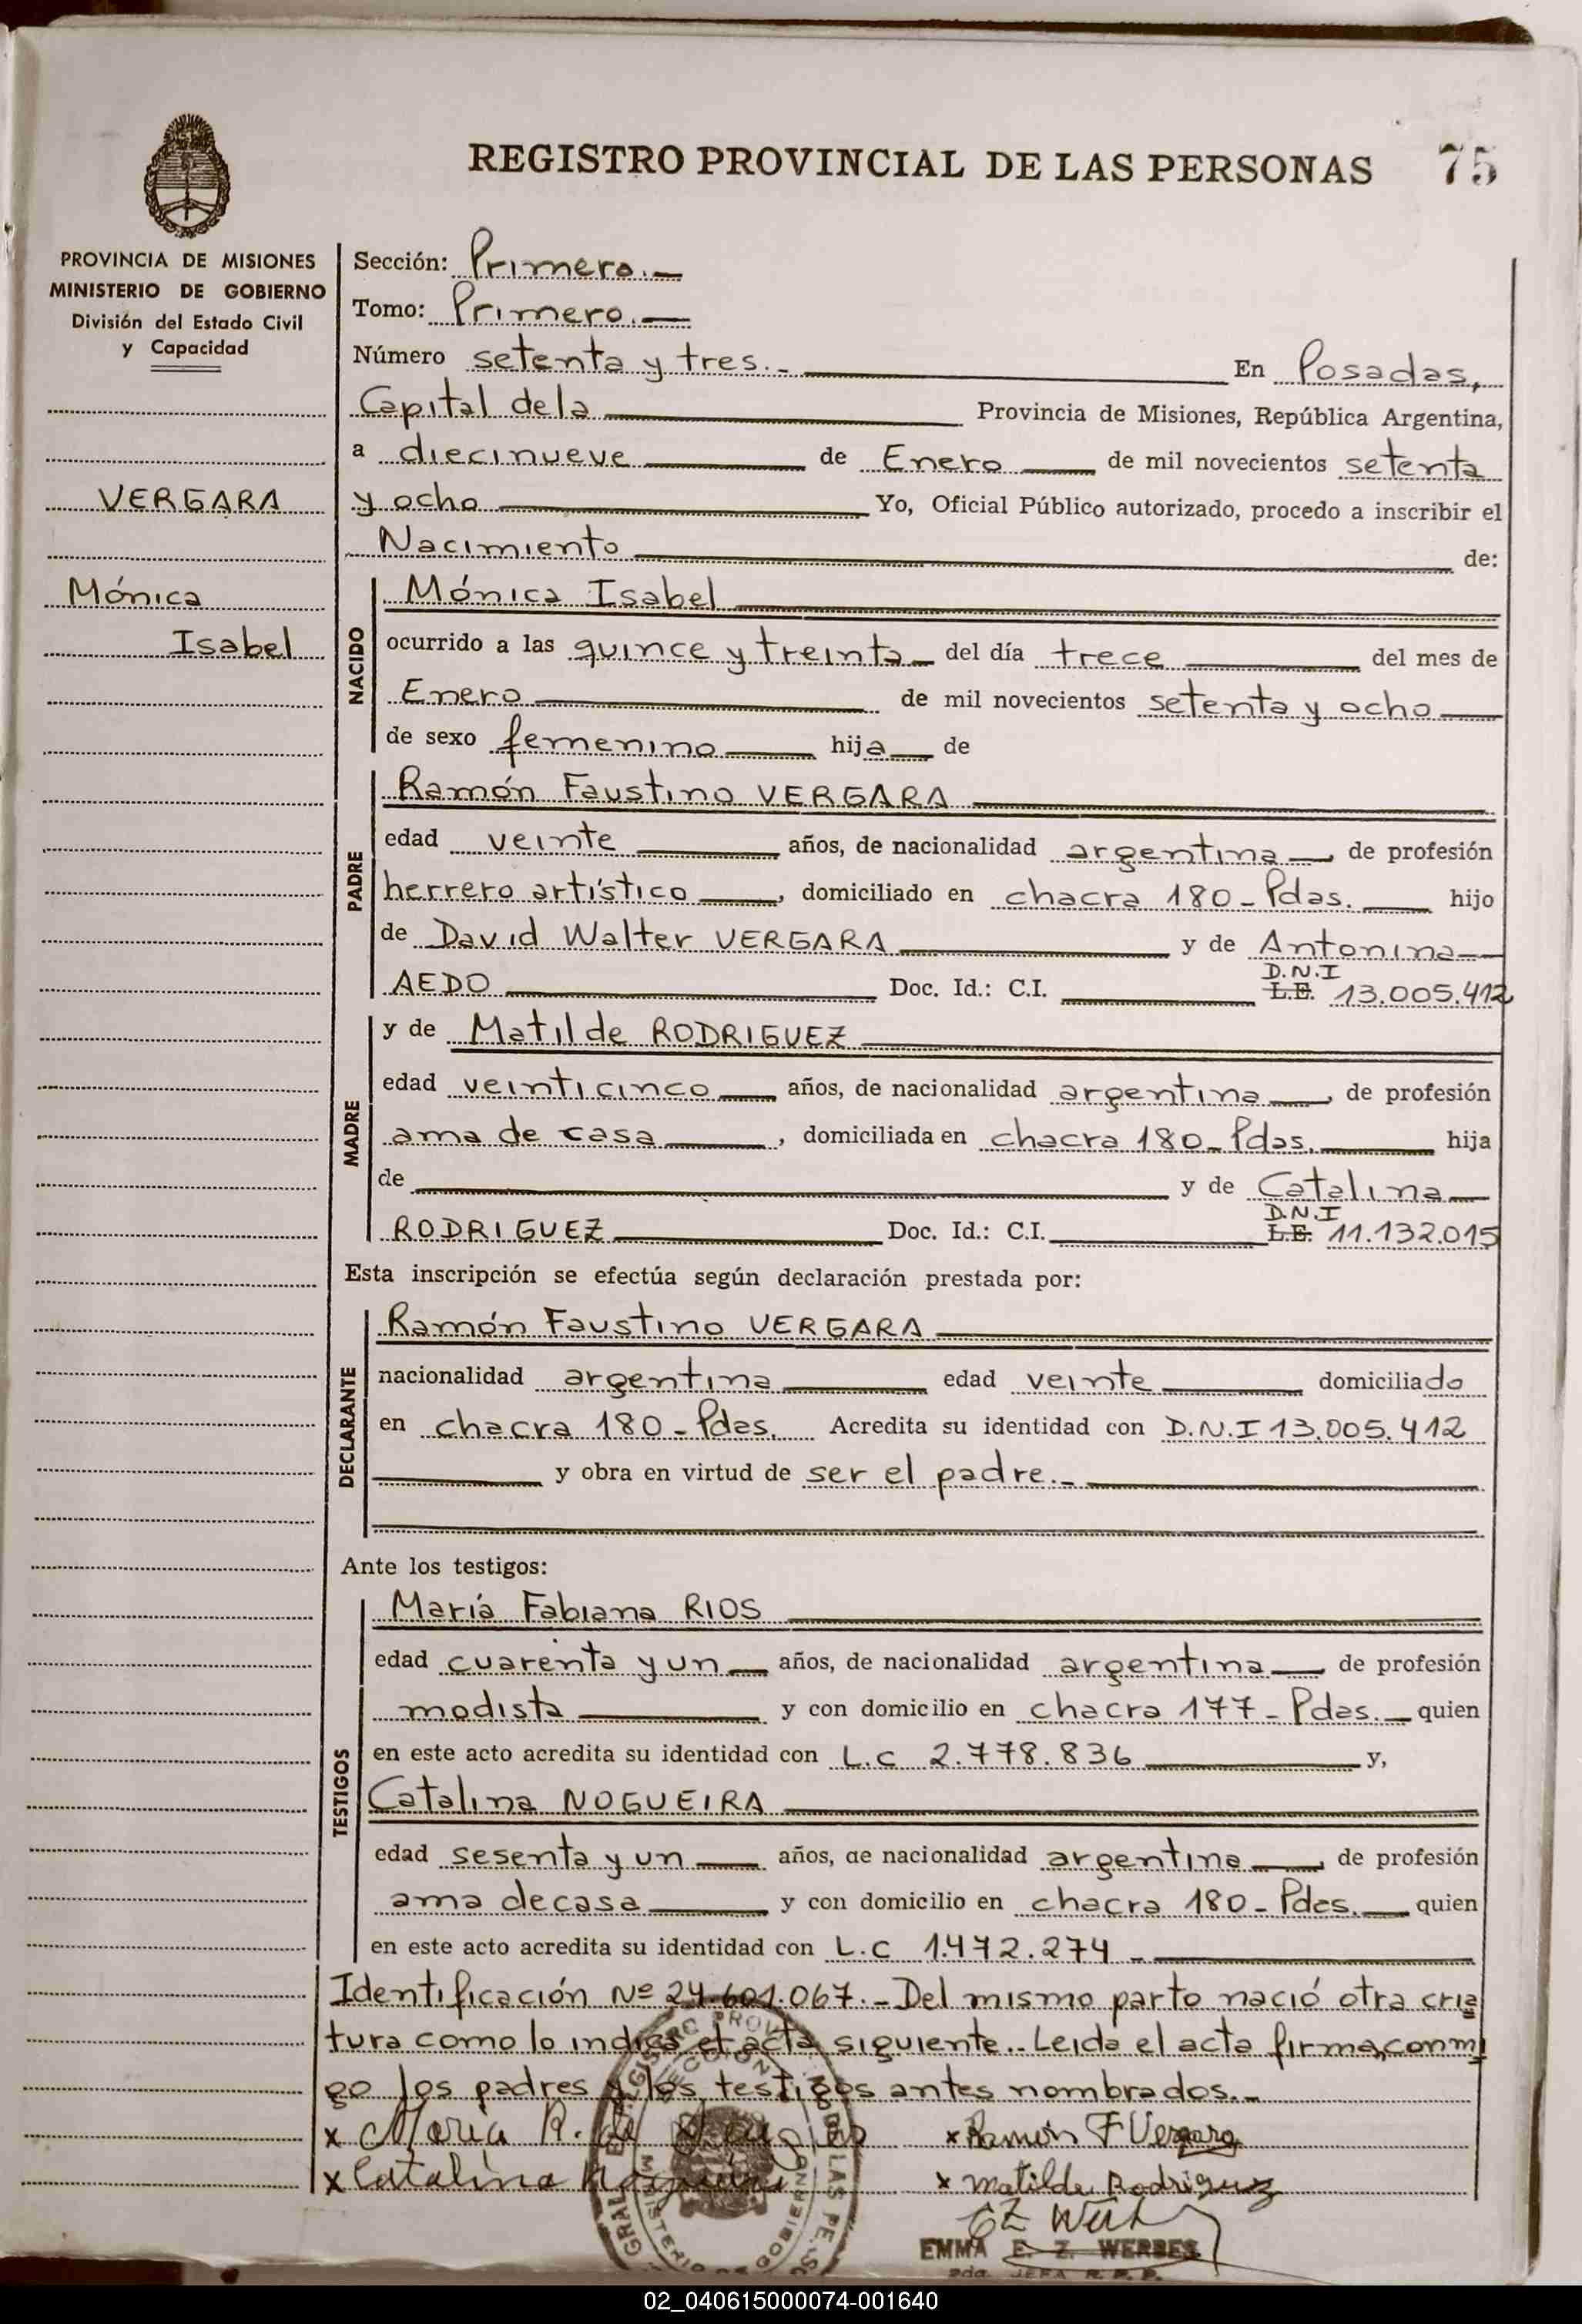 REGISTRO PROVINCIAL DE LAS PERSONAS 75
PROVINCIA DE MISIONES
MINISTERIO DE GOBIERNO
División del Estado Civil
y Capacidad
VERGARA
Mónica
Isabel
Sección: Primera.-
Tomo: Primero.-
Número setenta y tres.- En Posadas,
Capital de la Provincia de Misiones, República Argentina,
a diecinueve de Enero de mil novecientos setenta
y ocho Yo, Oficial Público autorizado, procedo a inscribir el
Nacimiento de:
NACIDO
Mónica Isabel
ocurrido a las quince y treinta del día trece del mes de
Enero de mil novecientos setenta y ocho
de sexo femenino hija de
PADRE
Ramón Faustino VERGARA
edad veinte años, de nacionalidad argentina, de profesión
herrero artístico, domiciliado en chacra 180 - Pdas. hijo
de David Walter VERGARA y de Antonina
D.N.I
AEDO Doc. Id.: C.I. L.E. 13.005.412
MADRE
y de Matilde RODRIGUEZ
edad veinticinco años, de nacionalidad argentina, de profesión
ama de casa, domiciliada en chacra 180 - Pdas. hija
de y de Catalina
D.N.I
RODRIGUEZ Doc. Id.: C.I. L.E. 11.132.015
Esta inscripción se efectúa según declaración prestada por:
DECLARANTE
Ramón Faustino VERGARA
nacionalidad argentina edad veinte domiciliado
en chacra 180 - Pdas. Acredita su identidad con D.N.I 13.005.412
y obra en virtud de ser el padre.-
Ante los testigos:
TESTIGOS
María Fabiana RIOS
edad cuarenta y un años, de nacionalidad argentina, de profesión
modista y con domicilio en chacra 177 - Pdas. quien
en este acto acredita su identidad con L.C 2.778.836 y,
Catalina NOGUEIRA
edad sesenta y un años, de nacionalidad argentina, de profesión
ama de casa y con domicilio en chacra 180 - Pdas. quien
en este acto acredita su identidad con L.C 1.472.274 -
Identificación Nº 24.601.067.- Del mismo parto nació otra cria
tura como lo indica el acta siguiente.. Leida el acta firma, conmi
go los padres y los testigos antes nombrados.-
x Maria R. de x Ramón F Vergara
x Catalina x Matilde Rodriguez
EMMA E. Z. WERBES
JEFA R. P. P.
02_040615000074-001640